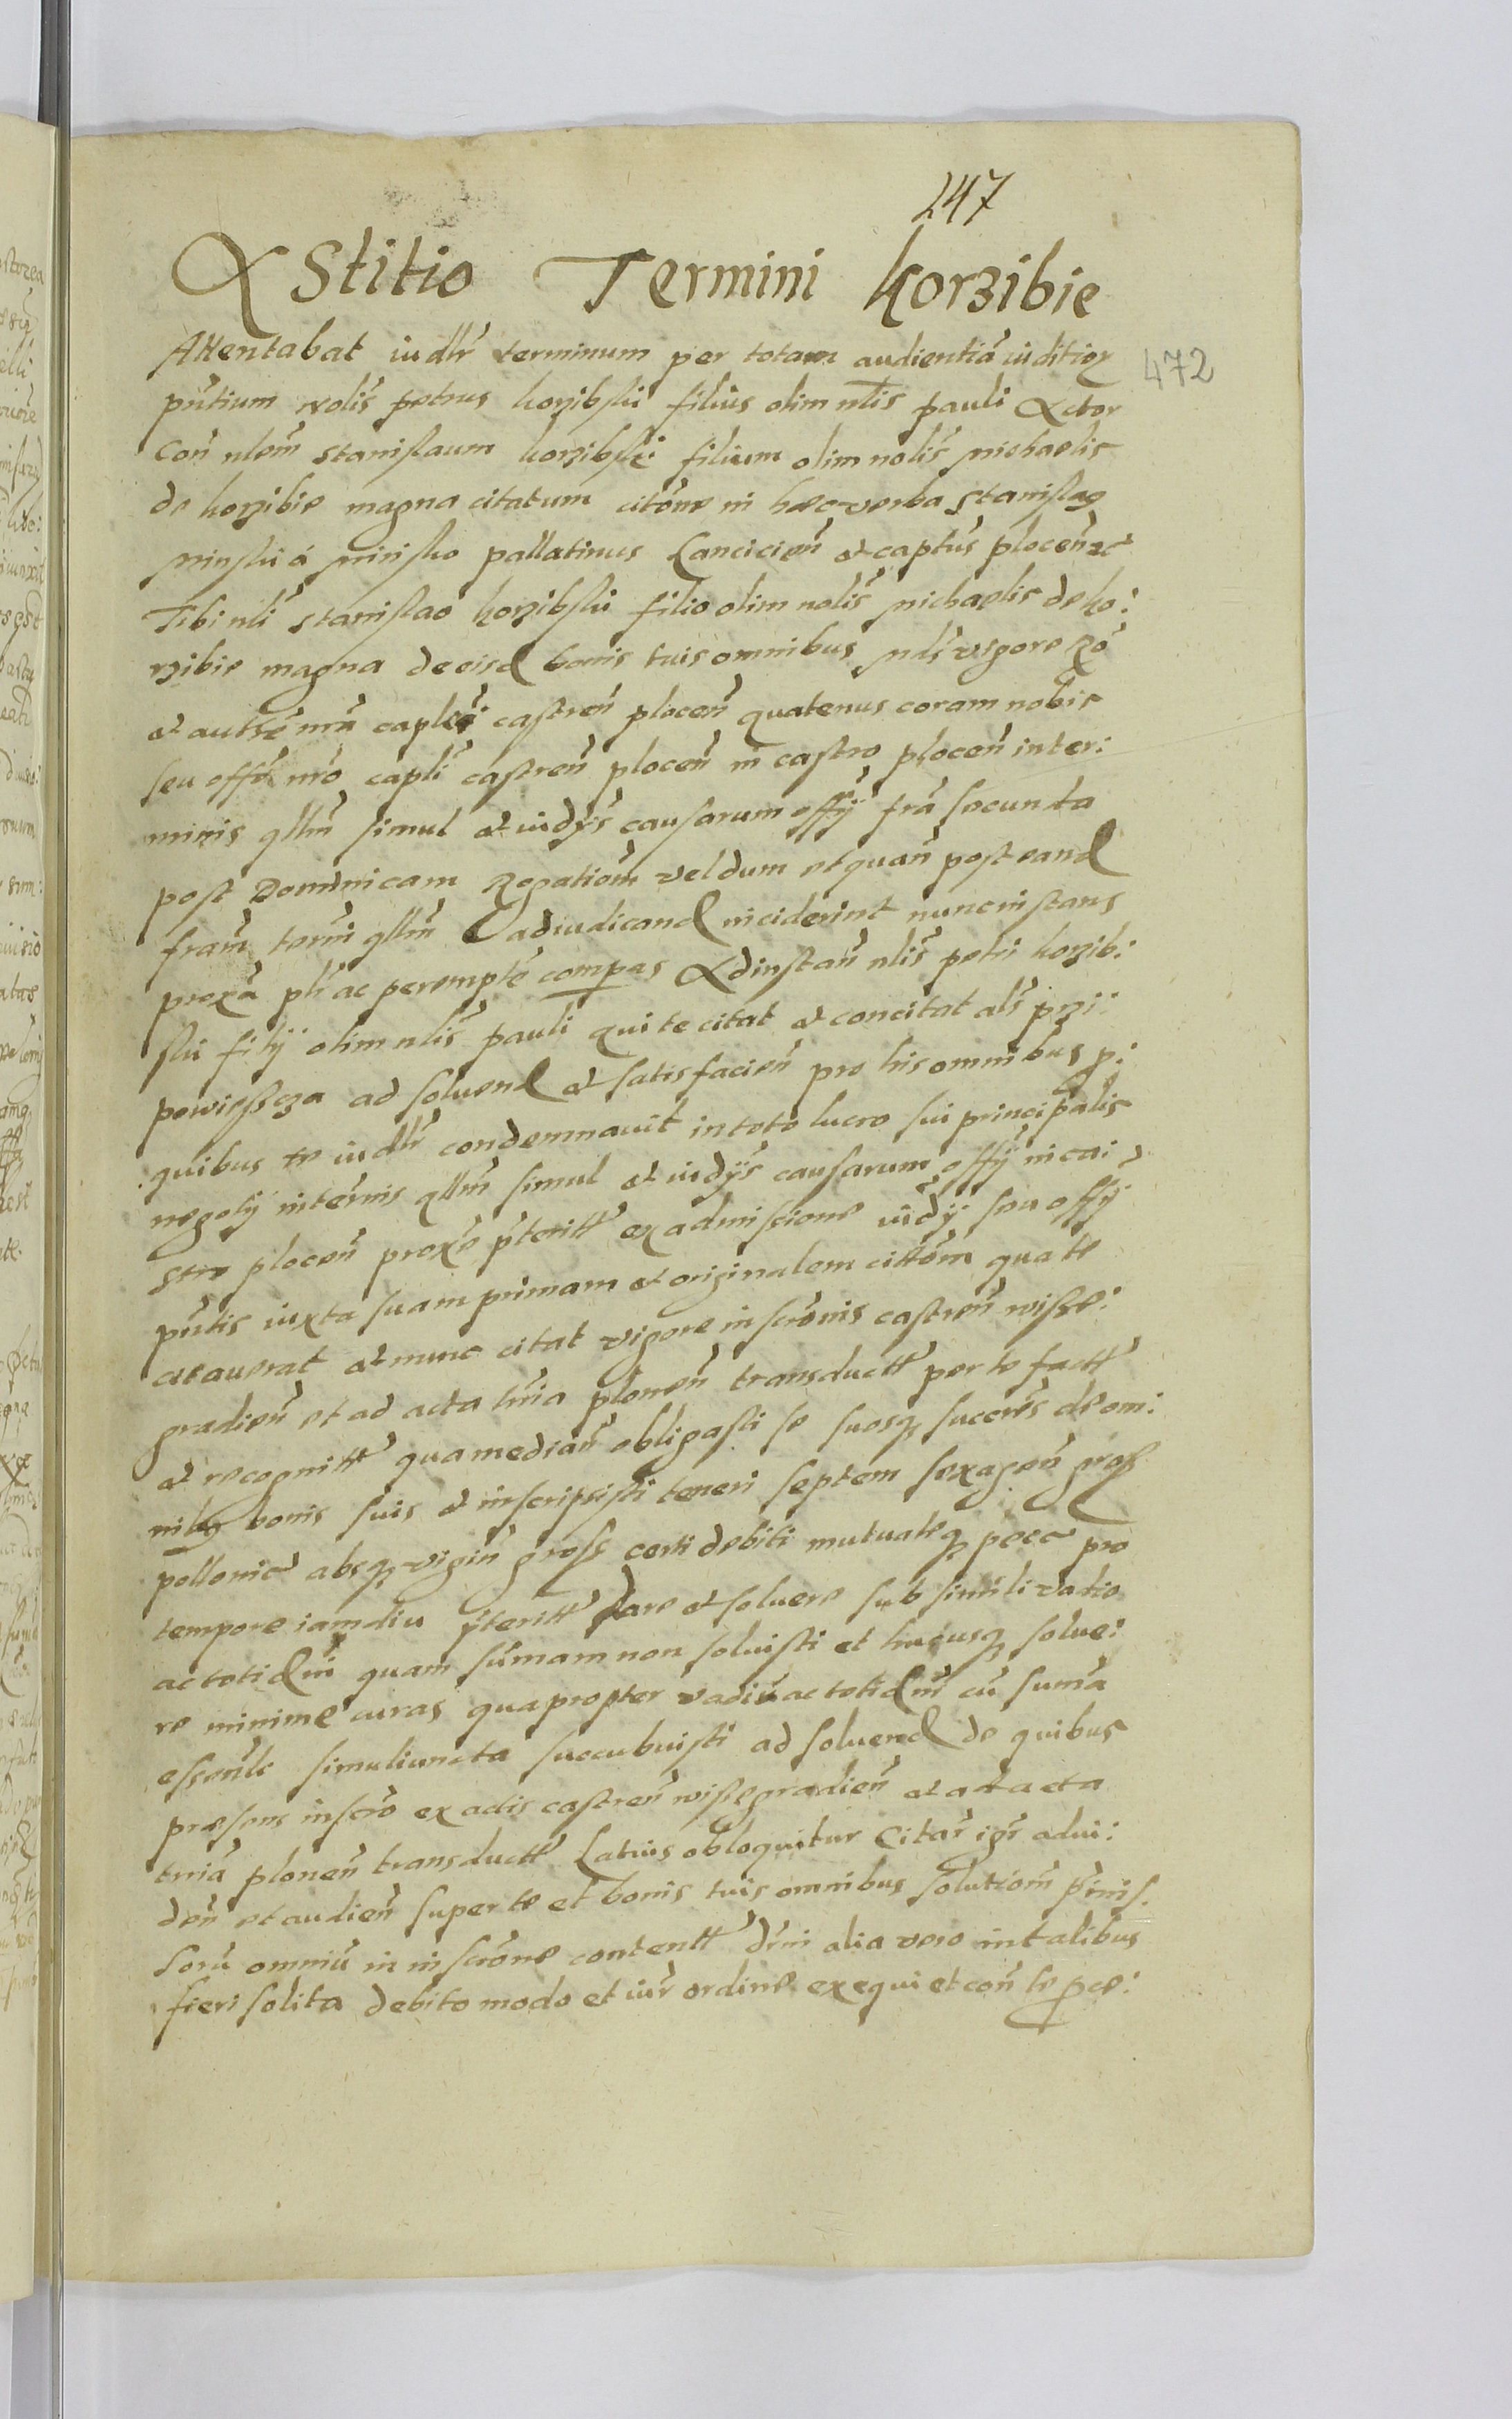 247
Astitio Termini Korzibie
472
Attentabat iudlr terminum per totam audientiā iuditior
pntium nolis petrus korzibski filius olim nlis pauli Actor
Con nlem stanislaum korzibski filium olim nolis michaelis
de korzibie magna citatum citōne in hæc verba Stanislaus
minski á minsko pallatinus Lancicien et captus plocen zc
Tibi nli stanislao korzibski filio olim nolis michaelis de ko:
rzibie magna de eisd bonis tuis omnibus mds vigore Ro
et authē mrā caplei castren plocen quatenus coram nobis
seu offō nrō capli castren plocen in castro plocen inter:
minis qllm simul et iudys causarum offy frā secunda
post Dominicam Rogationm vel dum et quan post eand
fram term qllm adiudicand inciderint nunc instans
proxā plr ac peremptē compas Ad instan nlis petri korzib:
ski filij olim nlis pauli qui te citat et concitat als przi:
powieszcza ad soluend et satisfacien pro his omnibus p:
quibus te iudlr condemnauit in toto lucro sui principalis
negoty in termis qllm simul et iudys causarum offy in ca:
stro plocen proxē pteritt ex admissione iudy seu offy
pntis iuxta suam primam et originalem cittōm qua te
citauerat et nunc citat vigore inscrōnis castren wisse:
gradien et ad acta trria plonen transductt per te factt
et recognitt qua median obligasti se suosq succres de om:
nibq bonis suis et inscripsisti teneri septem sexagen gross
pollonic absq vigin gross certi debiti mutuateq pecc pro
tempore iamdiu pteritt dare et soluere sub simili vadio
ac totidm quam sumam non soluisti et hucusq solue:
re minime curas quapropter vadiū ac totidm cū sumā
essenli simuliuncta succubuisti ad soluend de quibus
præsens inscro ex actis castren wissegradien et ad acta
trriā plonen transductt Latius obloquitur Citar igr ad vi:
den et audien super te et bonis tuis omnibus solutionm pmis:
sorū omniū in inscrōne contentt drni alia vero in talibus
fieri solita debito modo et iur ordine exequi et con te pce: